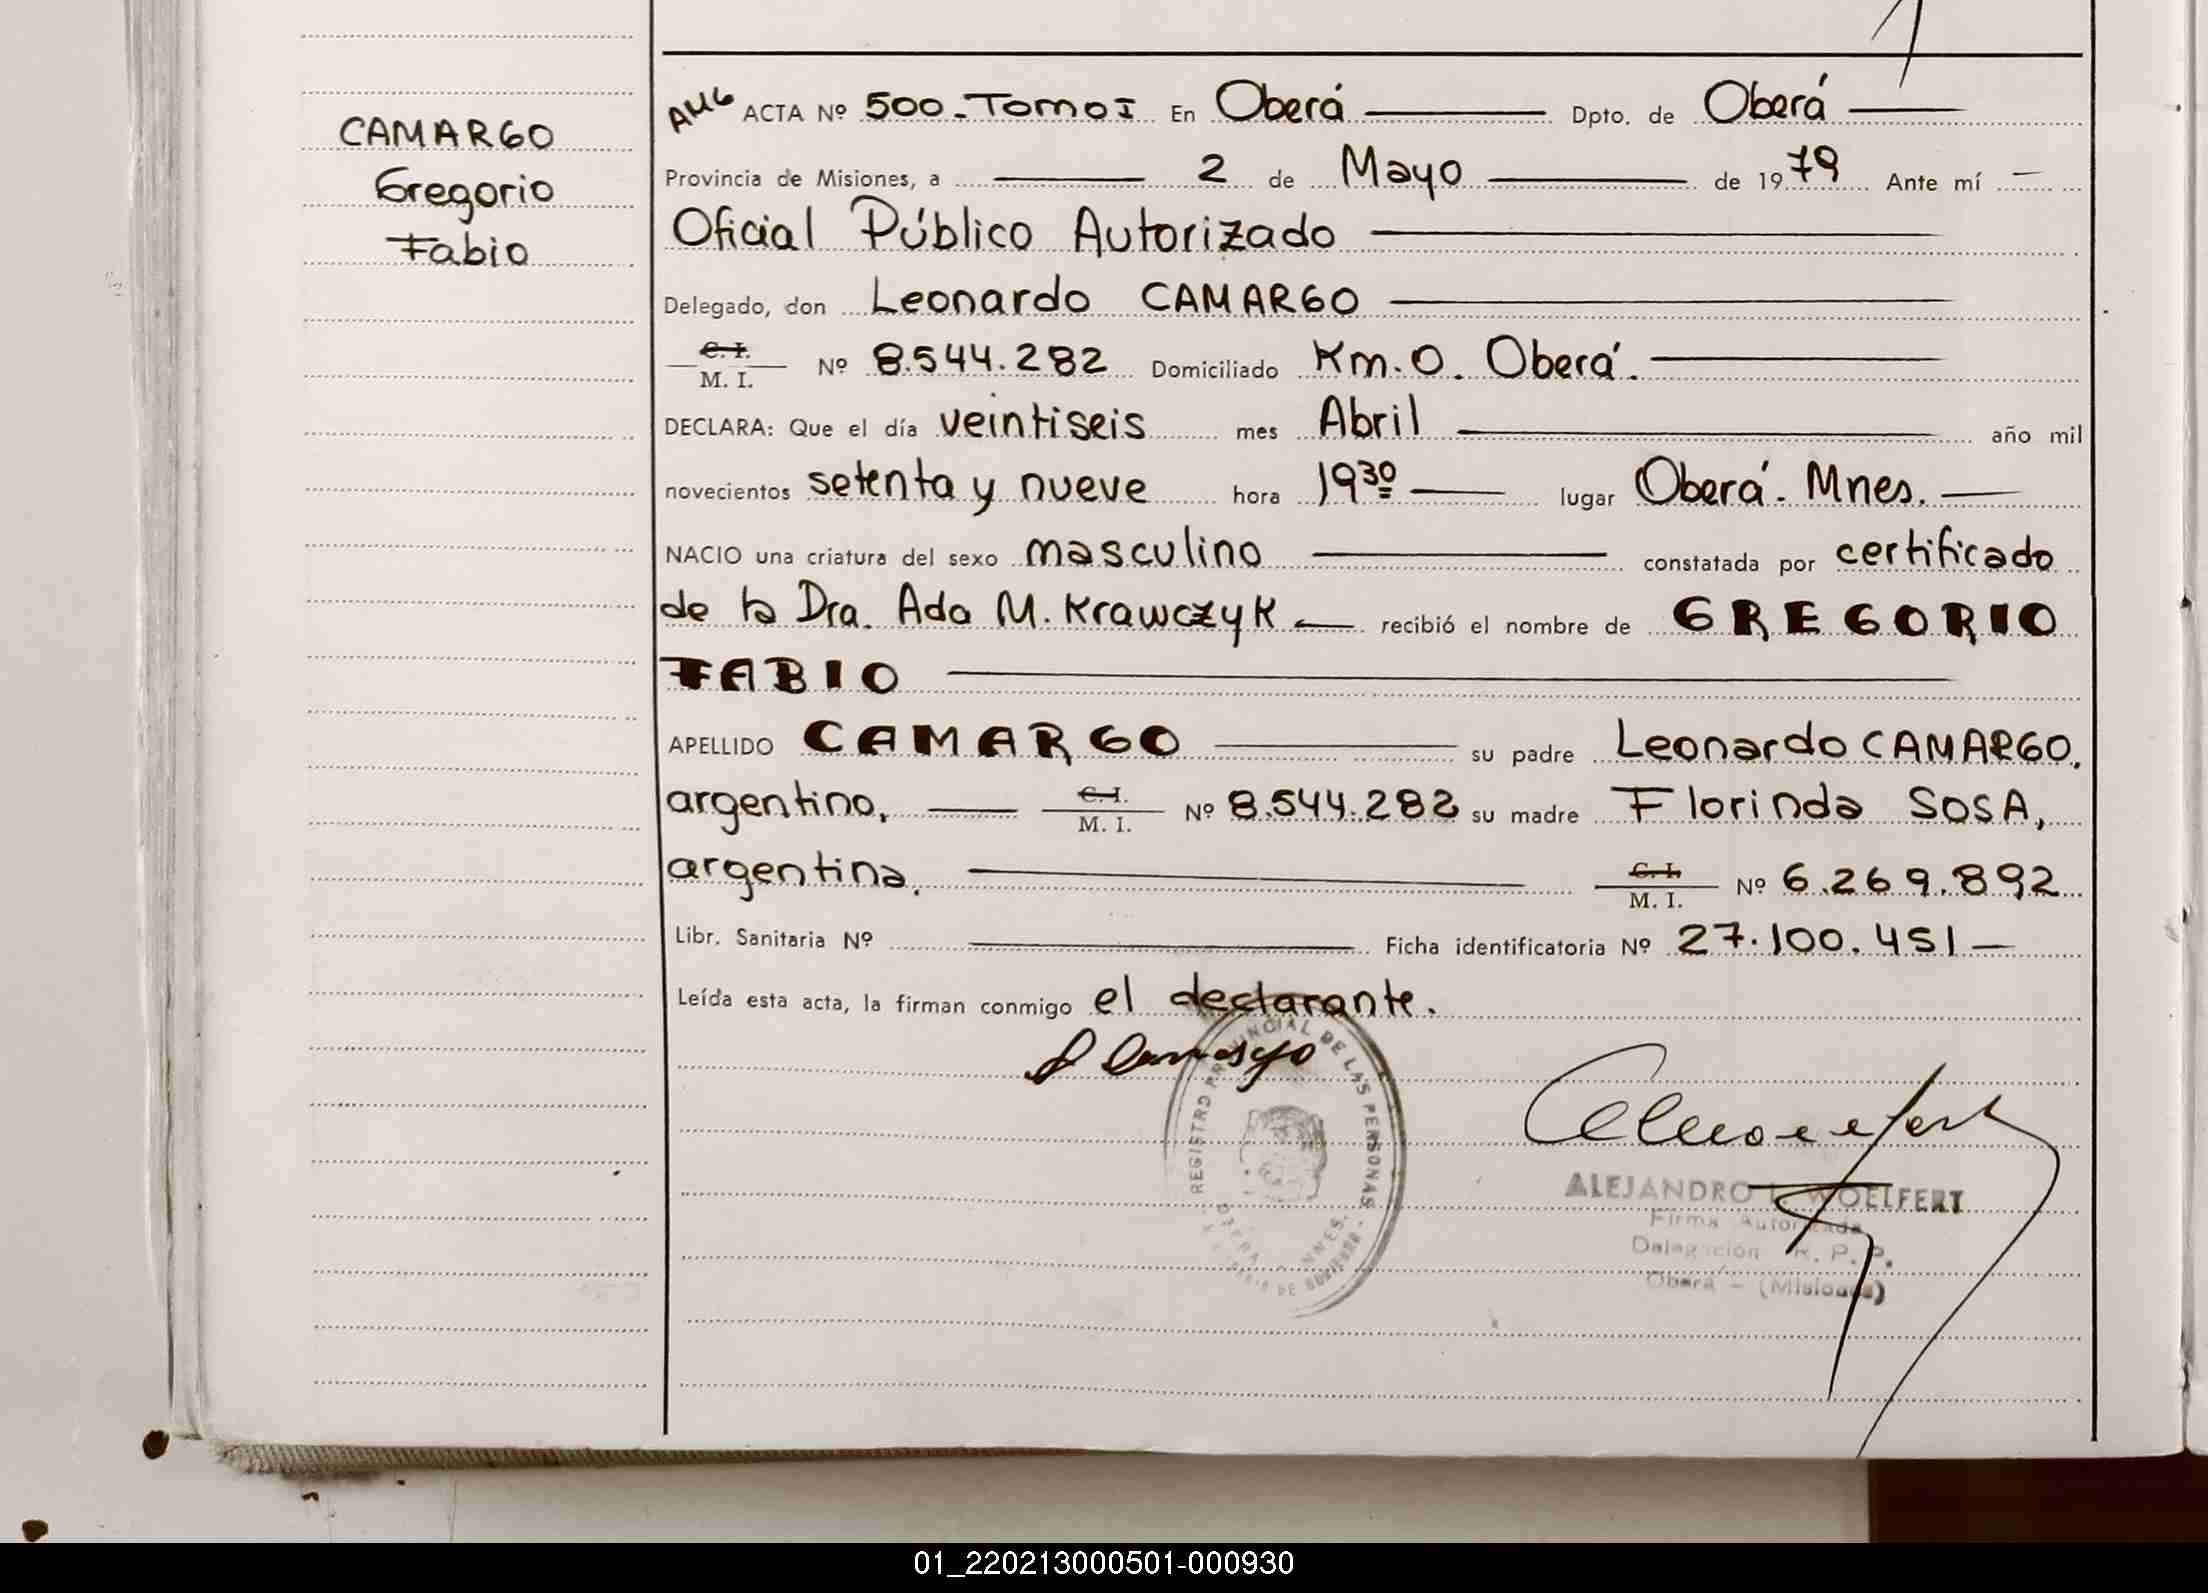 CAMARGO
Gregorio
Fabio
ACTA Nº 500.-Tomo I En Oberá Dpto. de Oberá
Provincia de Misiones, a 2 de Mayo de 1979 Ante mí
Oficial Público Autorizado
Delegado, don Leonardo CAMARGO
C. I.
M. I. Nº 8.544.282 Domiciliado Km. 0. Oberá.
DECLARA: Que el día veintiseis mes Abril año mil
novecientos setenta y nueve hora 19 30 lugar Oberá. Mnes.
NACIO una criatura del sexo masculino constatada por certificado
de la Dra. Ada M. Krawczyk recibió el nombre de GREGORIO
FABIO
APELLIDO CAMARGO su padre Leonardo CAMARGO,
argentino, C. I. M. I. Nº 8.544.282 su madre Florinda SOSA,
argentina. C. I. M. I. Nº 6.269.892
Libr. Sanitaria Nº Ficha identificatoria Nº 27.100.451
Leída esta acta, la firman conmigo el declarante.
REGISTRO PROVINCIAL DE LAS PERSONAS
ALEJANDRO L. WOELFERT
Firma Autorizada
Delegación R. P. P.
Oberá - (Misiones)
01_220213000501-000930